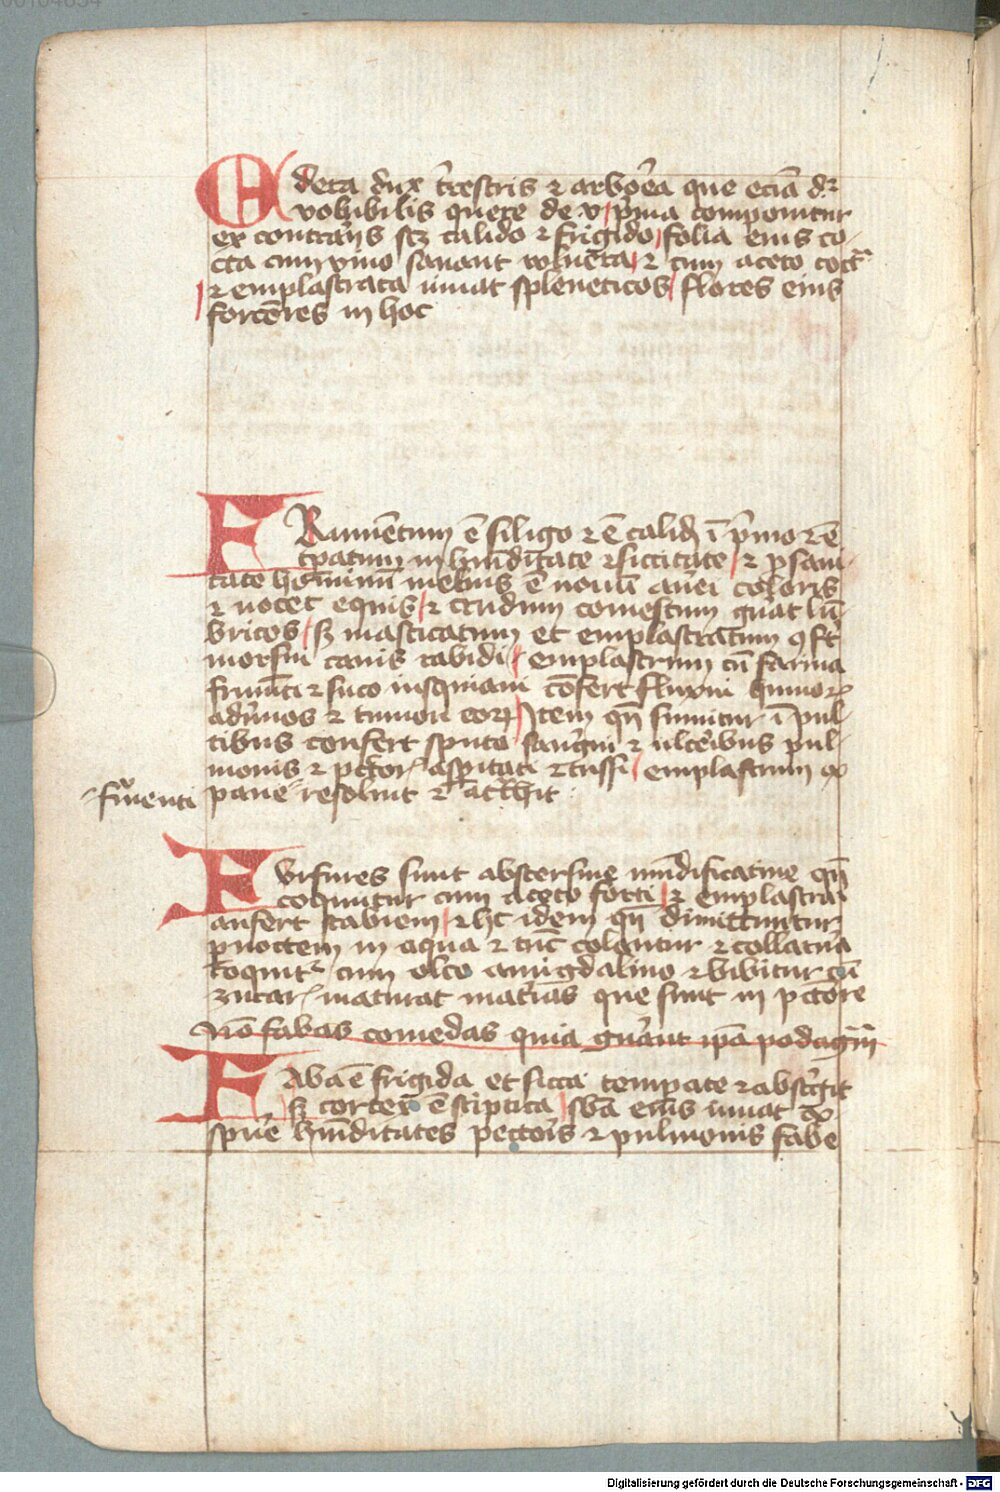 Edera dux t'restris ⁊ arborea que eciā dr̄
volubilis quere de v / p'ma componitur
ex contrariis scz calido ⁊ frigido / folia eius co-
cta cum vino sanant vulnera / ⁊ cum aceto coct'
/ ⁊ emplastrata iuuat spleneticos / flores eius
forcēres in hoc
FRumētum ē siligo ⁊ ē calid' ī p'mo ⁊ ē
tp̄atum in hūiditate ⁊ siccitate / ⁊ p sani-
tate hominum melius ē nouū aurei coloris
⁊ nocet equis / ⁊ crudum comestum gn̄at lū-
bricos / sz masticatum et emplastratum ꝯfert
morsui canis rabidi / emplastrum cū farina
frumēti ⁊ suco iusquiami cōfert fluxui humoꝝ
ad n'uos ⁊ tumori eoꝝ / Item qn̄ sumitur ī pul-
tibus confert sputo sanguī ⁊ ulcēibus pul-
monis ⁊ pctor' asp̄itati ⁊ tussi / emplastrum ex
pane resoluit ⁊ att̄hit
frūmenti
FUrfures sunt abstersiue mūdificatiue qn̄
coquuntur cum aceto forti / ⁊ emplastrati
aufert scabiem / ⁊ hc idem qn̄ dimittuntur
p noctem in aqua ⁊ tūc colantur ⁊ collatura
coquit' cum oleo amigdalino ⁊ bibitur cū
zucar' maturat mat'ias que sunt in pctore
Nō fabas comedas quia gn̄ant ip̄a podagrā
FAba ē frigida et sicca temp̄ate ⁊ abst'git
sz cortex ē stiptica / sb̄a eius iuuat ad ex
spu'e hūiditates pectoris ⁊ pulmonis fabe
Digitalisierung gefördert durch die Deutsche Forschungsgemeinschaft - DFG